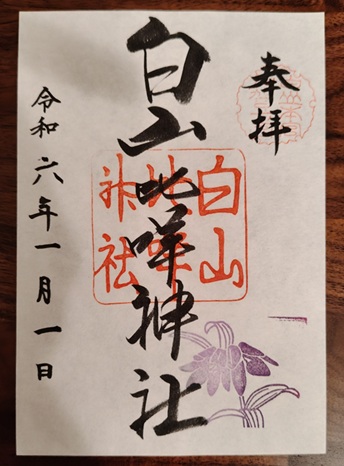 奉拝
白山比咩神社
白山
比咩
神社
令和六年一月一日